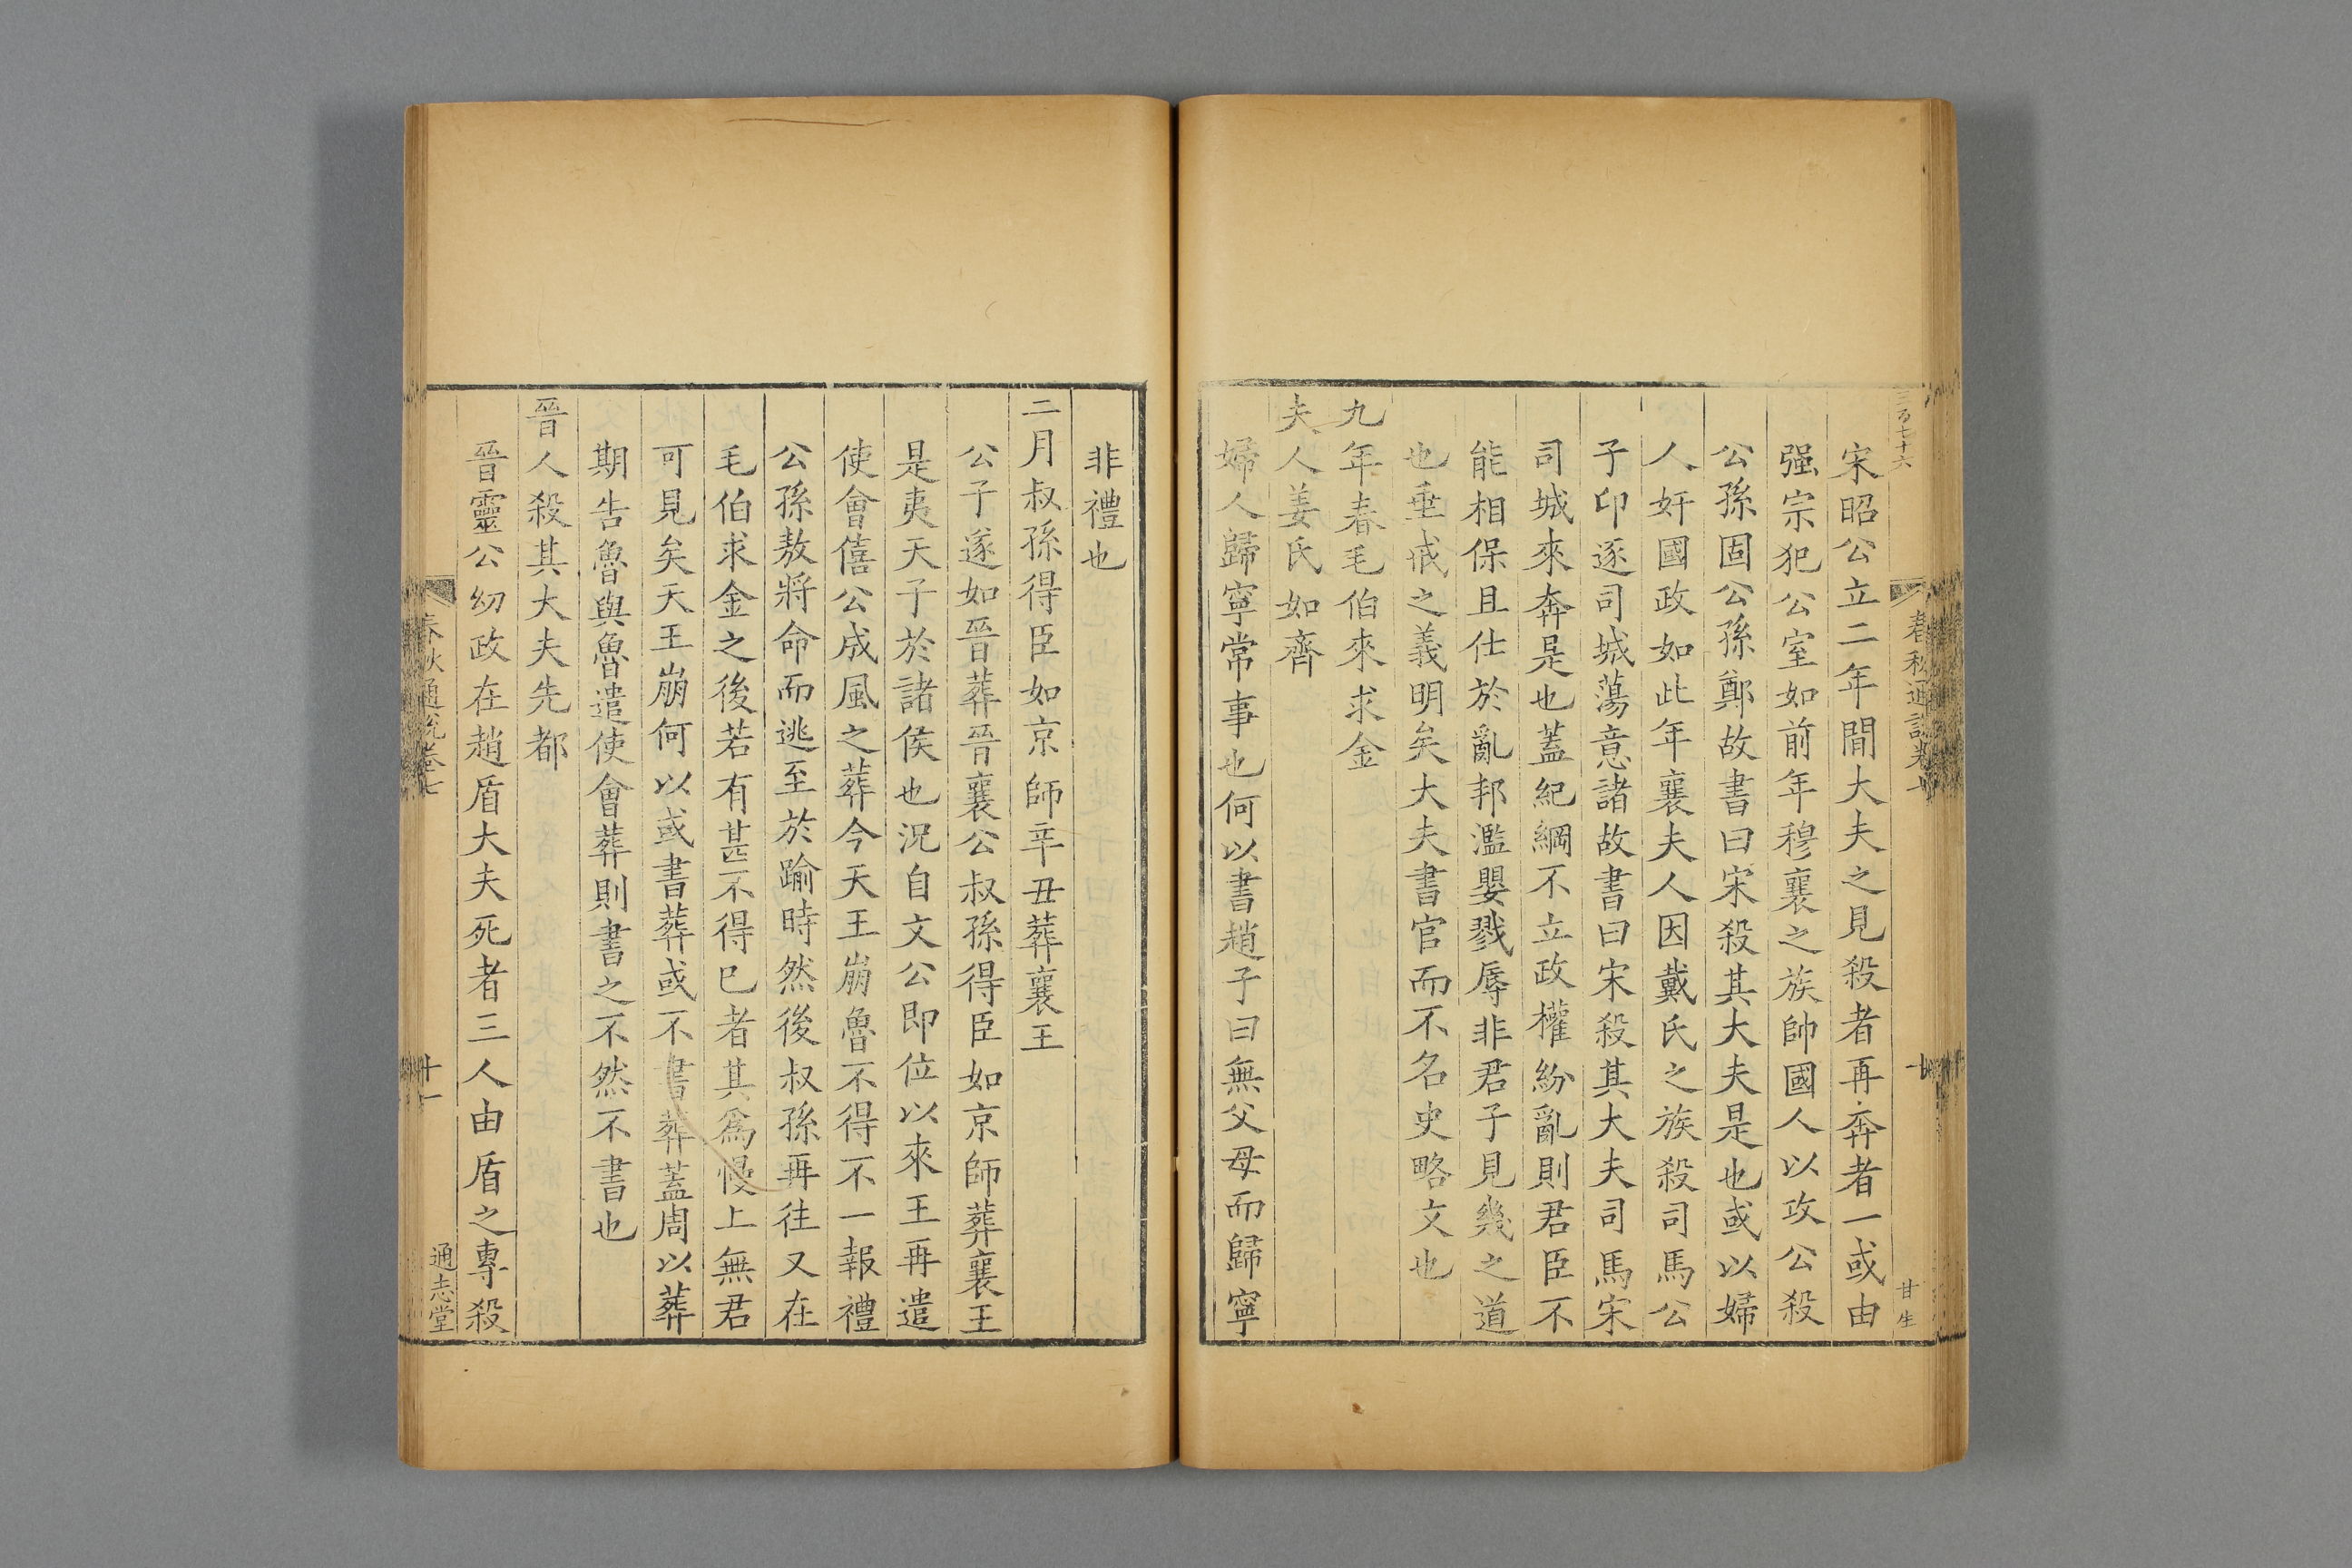 三百七十六
春秋通說卷七
十
甘生
宋昭公立二年間大夫之見殺者再奔者一或由
强宗犯公室如前年穆襄之族帥國人以攻公殺
公孫固公孫鄭故書曰宋殺其大夫是也或以婦
人奸國政如此年襄夫人因戴氏之族殺司馬公
子卬逐司城蕩意諸故書曰宋殺其大夫司馬宋
司城來奔是也蓋紀綱不立政權紛亂則君臣不
能相保且仕於亂邦濫嬰戮辱非君子見幾之道
也垂戒之義明矣大夫書官而不名史略文也
九年春毛伯來求金
夫人姜氏如齊
婦人歸寧常事也何以書趙子曰無父母而歸寧
非禮也
二月叔孫得臣如京師辛丑葬襄王
公子遂如晉葬晉襄公叔孫得臣如京師葬襄王
是夷天子於諸侯也況自文公即位以來王再遣
使會僖公成風之葬今天王崩魯不得不一報禮
公孫敖將命而逃至於踰時然後叔孫再往又在
毛伯求金之後若有甚不得已者其爲慢上無君
可見矣天王崩何以或書葬或不書葬蓋周以葬
期告魯與魯遣使會葬則書之不然不書也
晉人殺其大夫先都
晉靈公幼政在趙盾大夫死者三人由盾之專殺
春秋通說卷七
十一
通志堂